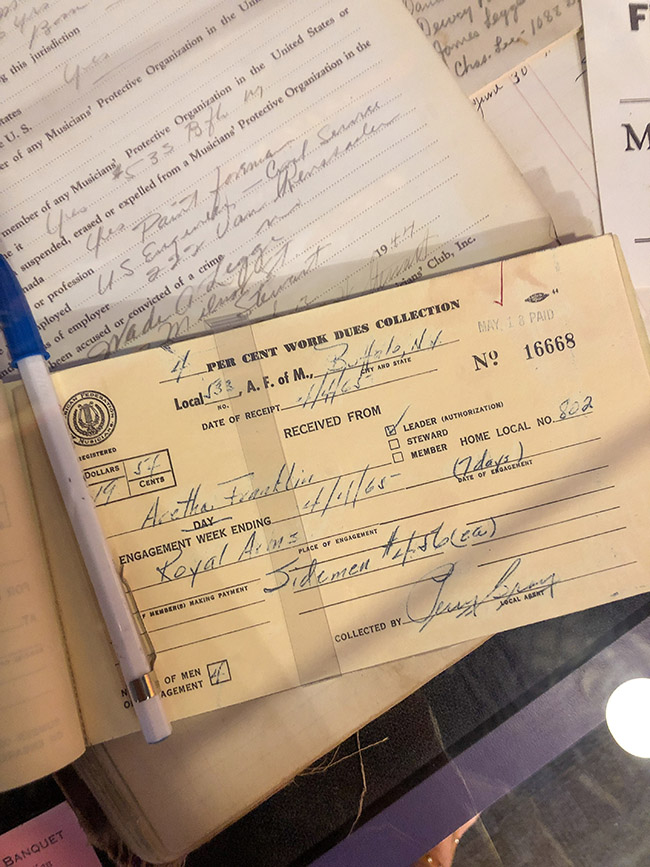 Yes
Born
g this jurisdiction
Yes
tates
e U.S.
er of any Musicians' Protective Organization in the United States or
Yes #533 Bflo
member of any Musicians' Protective Organization in the United States or
e it
suspended, erased or expelled from a Musicians' Protective Organization in the
nada
Yes Paint Foreman
or profession
US Engineers - Civil Service
ployed
222 Van Rensselaer
s of employer
been accused or convicted of a crime
no
Wade A Legge
Mildred
Stewart
1944
sicians' Club, Inc.
Dewey
James Legge
Chas. Lee - 1082
June 30
F
M
4 PER CENT WORK DUES COLLECTION
MAY 18 PAID
Local 533, A. F. of M., Buffalo, N.Y.
NO.
CITY AND STATE
No 16668
DATE OF RECEIPT 4/4/65
RECEIVED FROM
LEADER (AUTHORIZATION)
STEWARD
MEMBER
HOME LOCAL NO. 802
REGISTERED
DOLLARS
CENTS
19 57
Aretha Franklin
(7 days)
DAY
DATE OF ENGAGEMENT
ENGAGEMENT WEEK ENDING 4/4/65
Royal Arms
PLACE OF ENGAGEMENT
Sidemen #456 (ea)
F MEMBER(S) MAKING PAYMENT
COLLECTED BY Perry Gray
LOCAL AGENT
OF MEN
GAGEMENT 4
BANQUET